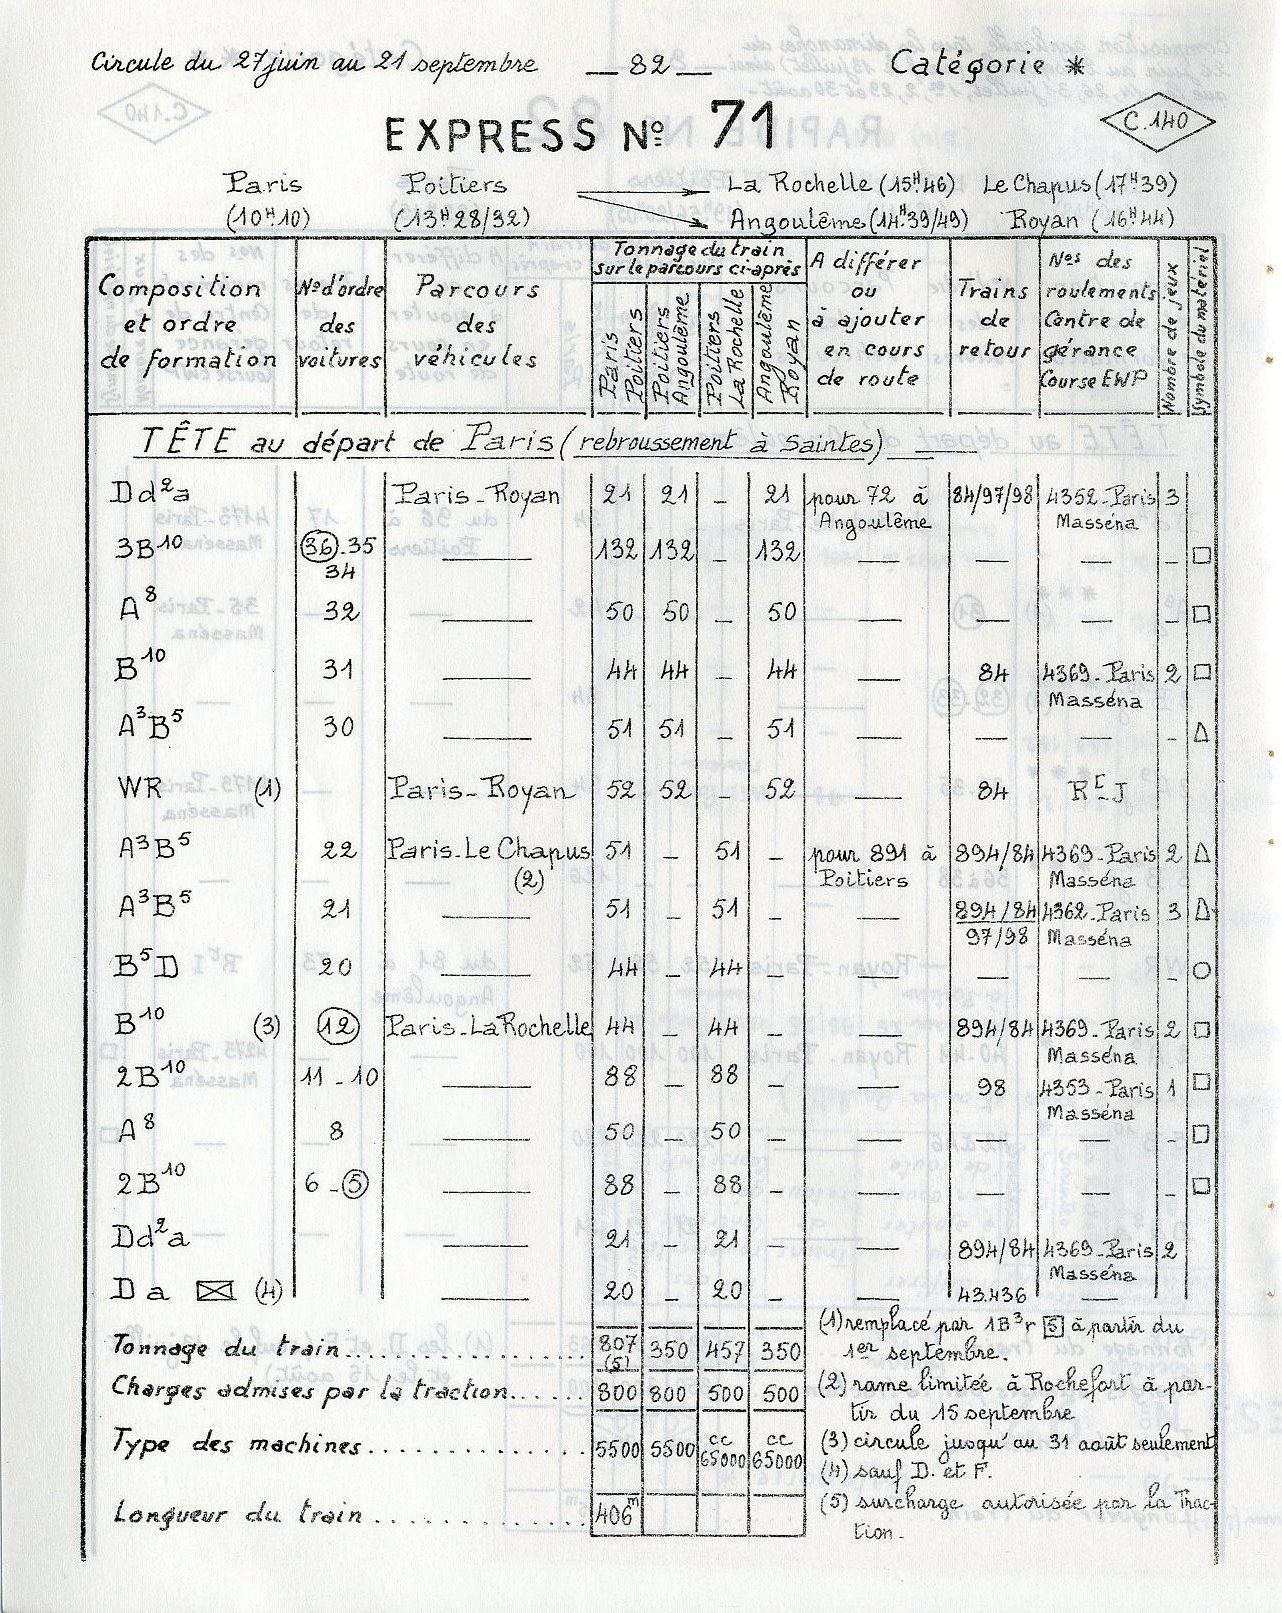 Circule du 27 juin au 21 septembre — 82 — Catégorie *
C.140
EXPRESS Nº 71
Paris Poitiers La Rochelle (15H46) Le Chapus (17H39)
(10H10) (13H28/32) Angoulême (14H39/49) Royan (16H44)
Composition et ordre de formation
Nº d'ordre des voitures
Parcours des véhicules
Tonnage du train sur le parcours ci-après
Paris Poitiers
Poitiers Angoulême
Poitiers La Rochelle
Angoulême Royan
A différer ou à ajouter en cours de route
Trains de retour
Nos des roulements Centre de gérance Course EWP
Nombre de jeux
Symbole du matériel
TÊTE au départ de Paris (rebroussement à Saintes)
Dd²a Paris-Royan 21 21 – 21 pour 72 à 84/97/98 4352-Paris 3
Angoulême Masséna
3B¹⁰ (36)-35 — 132 132 – 132 — — — – □
34
A⁸ 32 — 50 50 – 50 — — — – □
B¹⁰ 31 — 44 44 – 44 — 84 4369-Paris 2 □
Masséna
A³B⁵ 30 — 51 51 – 51 — — — – △
WR (1) Paris-Royan 52 52 – 52 — 84 Rᴱ J
A³B⁵ 22 Paris-Le Chapus 51 – 51 – pour 891 à 894/84 4369-Paris 2 △
(2) Poitiers Masséna
A³B⁵ 21 — 51 – 51 – — 894/84 4362-Paris 3 △
97/98 Masséna
B⁵D 20 — 44 – 44 – — — — – ○
B¹⁰ (3) (12) Paris-La Rochelle 44 – 44 – — 894/84 4369-Paris 2 □
Masséna
2B¹⁰ 11-10 — 88 – 88 – — 98 4353-Paris 1 □
Masséna
A⁸ 8 — 50 – 50 – — — — – □
2B¹⁰ 6-(5) — 88 – 88 – — — — – □
Dd²a — 21 – 21 – — 894/84 4369-Paris 2
Masséna
Da ☒ (4) — 20 – 20 – — 43.436 —
Tonnage du train 807 (5) 350 457 350
Charges admises par la traction 800 800 500 500
Type des machines 5500 5500 CC 65000 CC 65000
Longueur du train 406m
(1) remplacé par 1B³r [5] à partir du
1er septembre.
(2) rame limitée à Rochefort à par-
tir du 15 septembre
(3) circule jusqu'au 31 août seulement
(4) sauf D. et F.
(5) surcharge autorisée par la Trac-
tion.